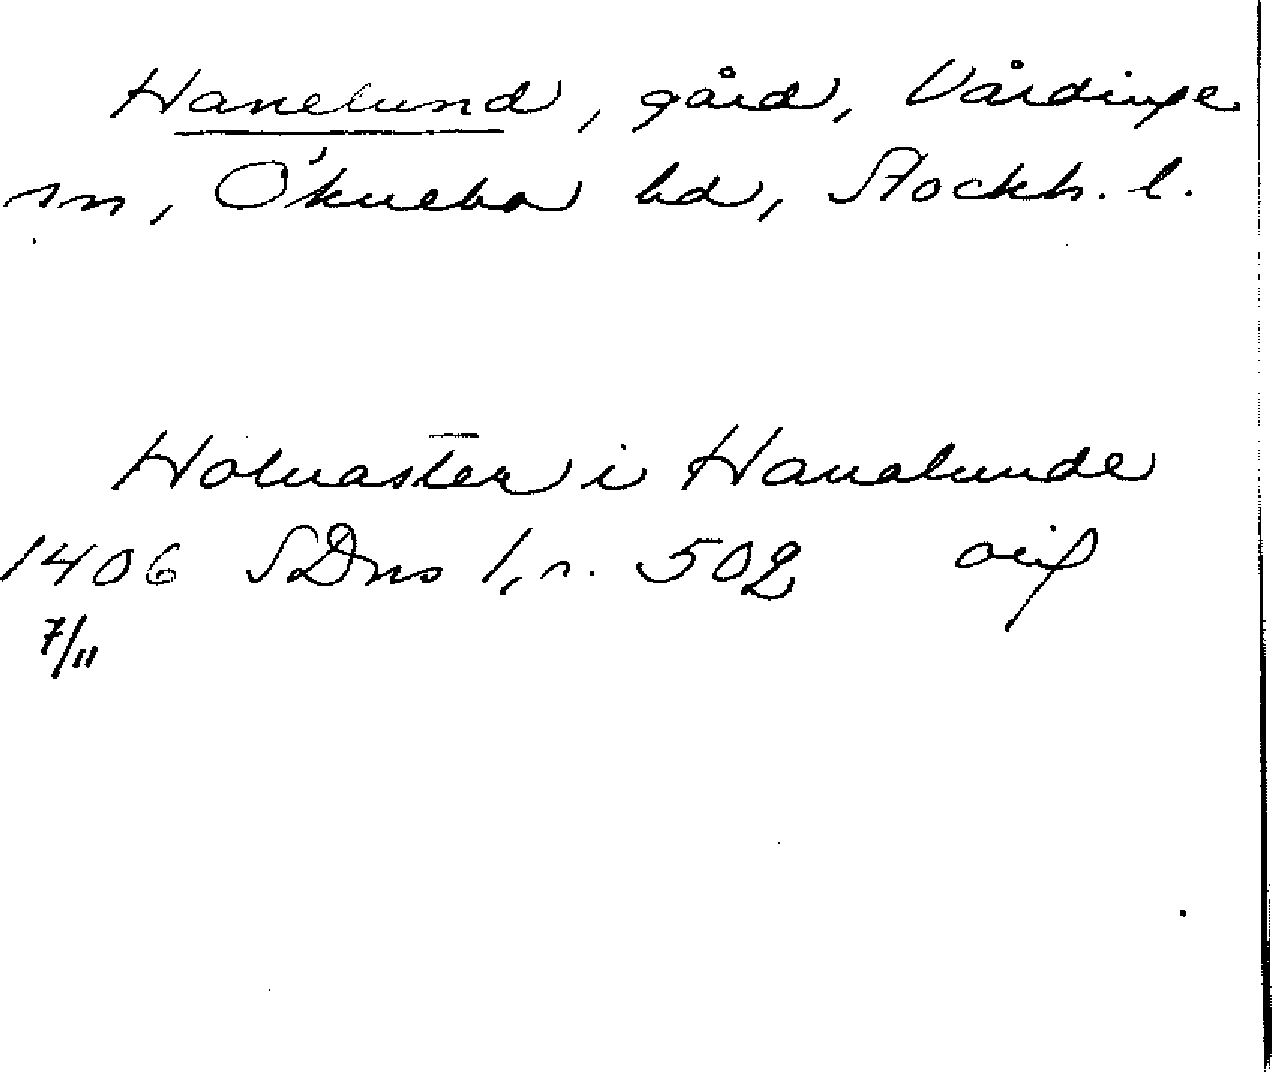 Hanelund, gård, Vårdinge
sn, Öknebo hd, Stockh. l.
Holuasten i Hanalunde
1406 SDns 1, s. 502 orig
7/11